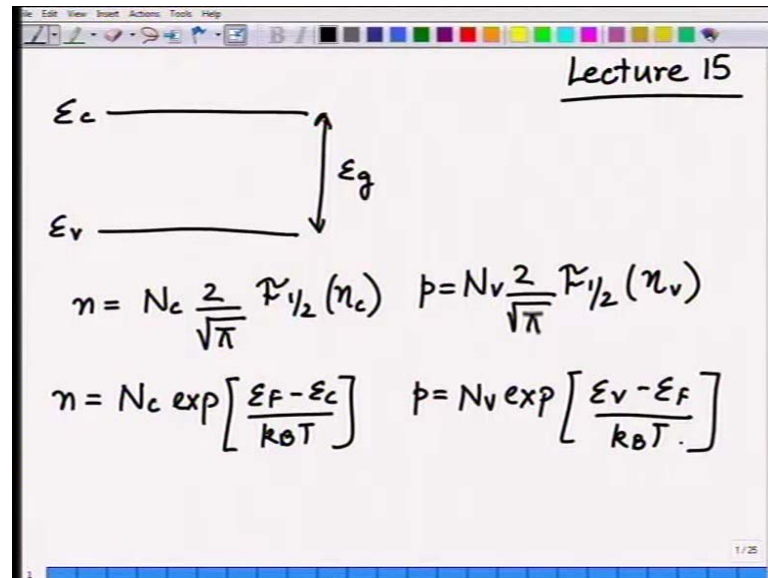 File Edit View Insert Actions Tools Help
B I
Lecture 15
εc
εg
εv
n = Nc 2/√π F1/2 (ηc) p = Nv 2/√π F1/2 (ηv)
n = Nc exp[(εF - εc)/kBT] p = Nv exp[(εv - εF)/kBT.]
1/25
1